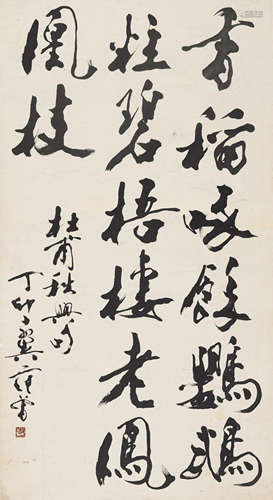 香稻啄餘鸚鵡
粒碧梧棲老鳳
凰枝
杜甫秋興句
丁卯冀范曾